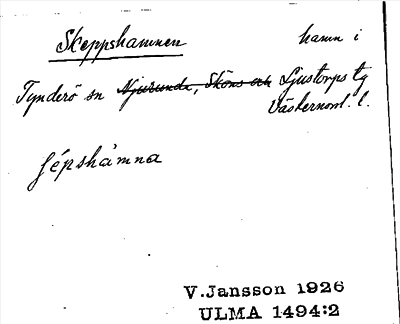 Skeppshamnen hamn i
Tynderö sn Njurunda, Sköns och Ljustorps tg
Västernorrl. l.
ʃépshàmna
V.Jansson 1926
ULMA 1494:2